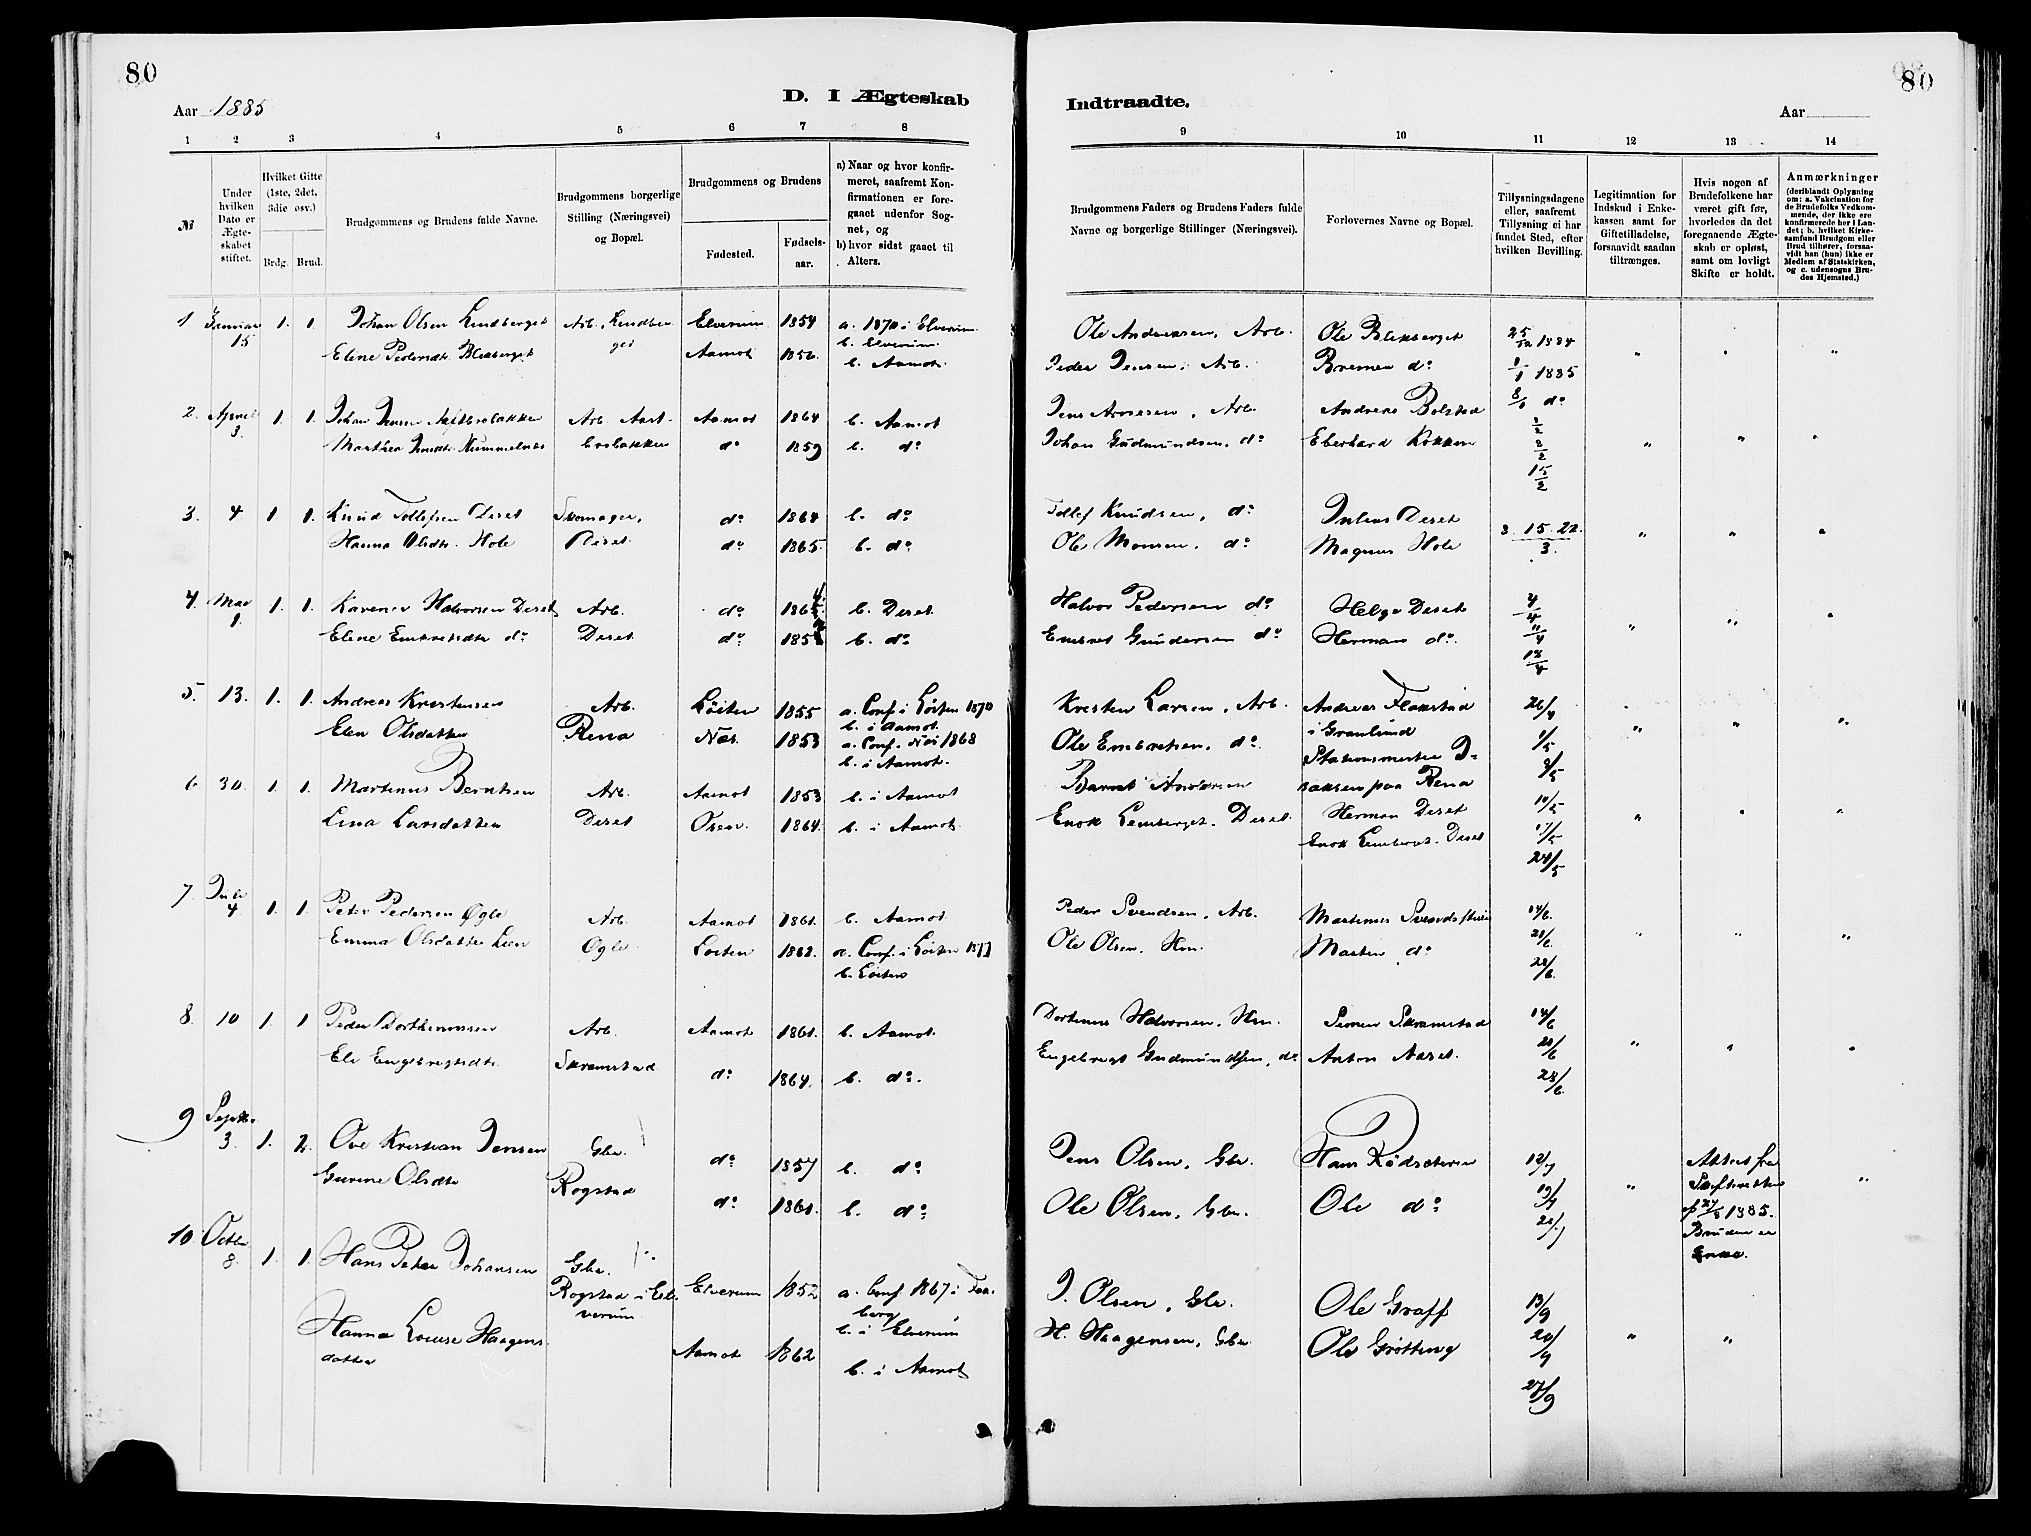 80
Aar 1885
D. I Ægteskab
1 2 3 4 5 6 7 8
№
Under hvilken Dato er Ægteskabet stiftet.
Hvilket Gifte (1ste, 2det, 3die osv.)
Brdg. Brud.
Brudgommens og Brudens fulde Navne.
Brudgommens borgerlige Stilling (Næringsvei) og Bopæl.
Brudgommens og Brudens
Fødested.
Fødsels-aar.
a) Naar og hvor konfirmeret, saafremt Konfirmationen er foregaaet udenfor Sognet, og
b) hvor sidst gaaet til Alters.
1 Januar 15 1. 1. Johan Olsen Lindberget Arb. Lindberget Elverum 1854 a. 1870 i Elverum b. Elverum
Elene Pedersdtr. Blikberget Aamot 1856. b. Aamot.
2. April 3. 1. 1. Johan Jensen Arb. Aamot 1864 b. Aamot
Marthea d° 1859 b. d°
3. 4 1 1. Knud Tollefsen Deset Skomager, d° 1864 b. d°
Hanna Olsdtr. Hole Deset d° 1865. b. d°
4. Mai 1. 1. 1. Halvorsen Deset Arb. d° b. Deset
Elene d° Deset d° b. d°
5. 13. 1. 1. Andreas Kristensen Arb. Løiten 1855 a. Conf. i Løiten 1870 b. i Aamot.
Elen Olsdatter Rena Næs. 1853 a. Conf. Næs 1868 b. i Aamot.
6 30. 1. 1. Martinus Berntsen Arb. Aamot 1853 b. i Aamot
Lina Larsdatter Deset Osen. 1864. b. i Aamot.
7. Juli 4. 1. 1. Peter Pedersen Øgle Arb. Aamot 1861. b. Aamot
Emma Olsdatter Lien Øgle Løiten 1862. a. Conf. i Løiten 1877 b. Løiten
8. 10 1. 1. Peder Dorthinussen Arb. Aamot 1861. b. Aamot.
Eli Engebregtsdtr. Skramstad d° 1864. b. d°.
9 Septbr. 3. 1. 2. Ove Kristian Jensen Gbr. d° 1857 b. d°
Gurine Olsdtr Rogstad d° 1861. b. d°
10. Octbr 8. 1. 1. Hans Peter Johansen Gbr. Rogstad i Elverum Elverum 1852 a. Conf. 1867 i Faaberg b. i Elverum
Hanna Louise Haagensdatter Aamot 1862 b. i Aamot
80
Indtraadte.
Aar
9 10 11 12 13 14
Brudgommens Faders og Brudens Faders fulde Navne og borgerlige Stillinger (Næringsvei).
Forlovernes Navne og Bopæl.
Tillysningsdagene eller, saafremt Tillysning ei har fundet Sted, efter hvilken Bevilling.
Legitimation for Indskud i Enkekassen samt for Giftetilladelse, forsaavidt saadan tiltrænges.
Hvis nogen af Brudefolkene har været gift før, hvorledes da det foregaaende Ægteskab er opløst, samt om lovligt Skifte er holdt.
Anmærkninger (deriblandt Oplysning om: a. Vakcination for de Brudefolks Vedkommende, der ikke ere konfirmerede her i Landet; b. hvilket Kirkesamfund Brudgom eller Brud tilhører, forsaavidt han (hun) ikke er Medlem af Statskirken, og c. udensogns Brudes Hjemsted.)
Ole Andreassen, Arb. Ole Blikberget 25/12 1884
Peder Jensen, Arb. Bremen d° 1/1 1885
Jens Arnesen, Arb. Andreas Bolstad 8/1 d°
Johan Gudmundsen, d° Eberhard Kokken 2/2 15/2
Tollef Knudsen, d° Julius Deset 8. 15. 22. / 3.
Ole Monsen, d° Magnus Hole
Halvor Pedersen d° Helge Deset 4/4
Embret Gundersen d° Herman d° 11/4 18/4
Kristen Larsen, Arb. Andreas Flakstad i Grønlund 26/4
Ole Embretsen, d° Stationsmester Isaksen paa Rena 1/5 3/5
Bernt Andersen Herman Deset 10/5
Enok Lemberget. Deset Enok Lemberget. Deset 17/5 24/5
Peder Svendsen, Arb. Martinus 14/6.
Ole Olsen, Hm. Morten d° 21/6. 28/6.
Dortinus Halvorsen, Hm. Simen Skramstad 14/6
Engebregt Gudmundsen, d° Anton Aaset. 21/6 28/6.
Jens Olsen, Gbr. Hans Rødseteren 12/7 Attest fra Skifteretten af 27/8 1885. Bruden er Enke.
Ole Olsen, Gbr. Ole d° 19/7
J. Olsen, Gbr. Ole Graff 13/9
H. Haagensen, Gbr Ole Grøtting 20/9 27/9